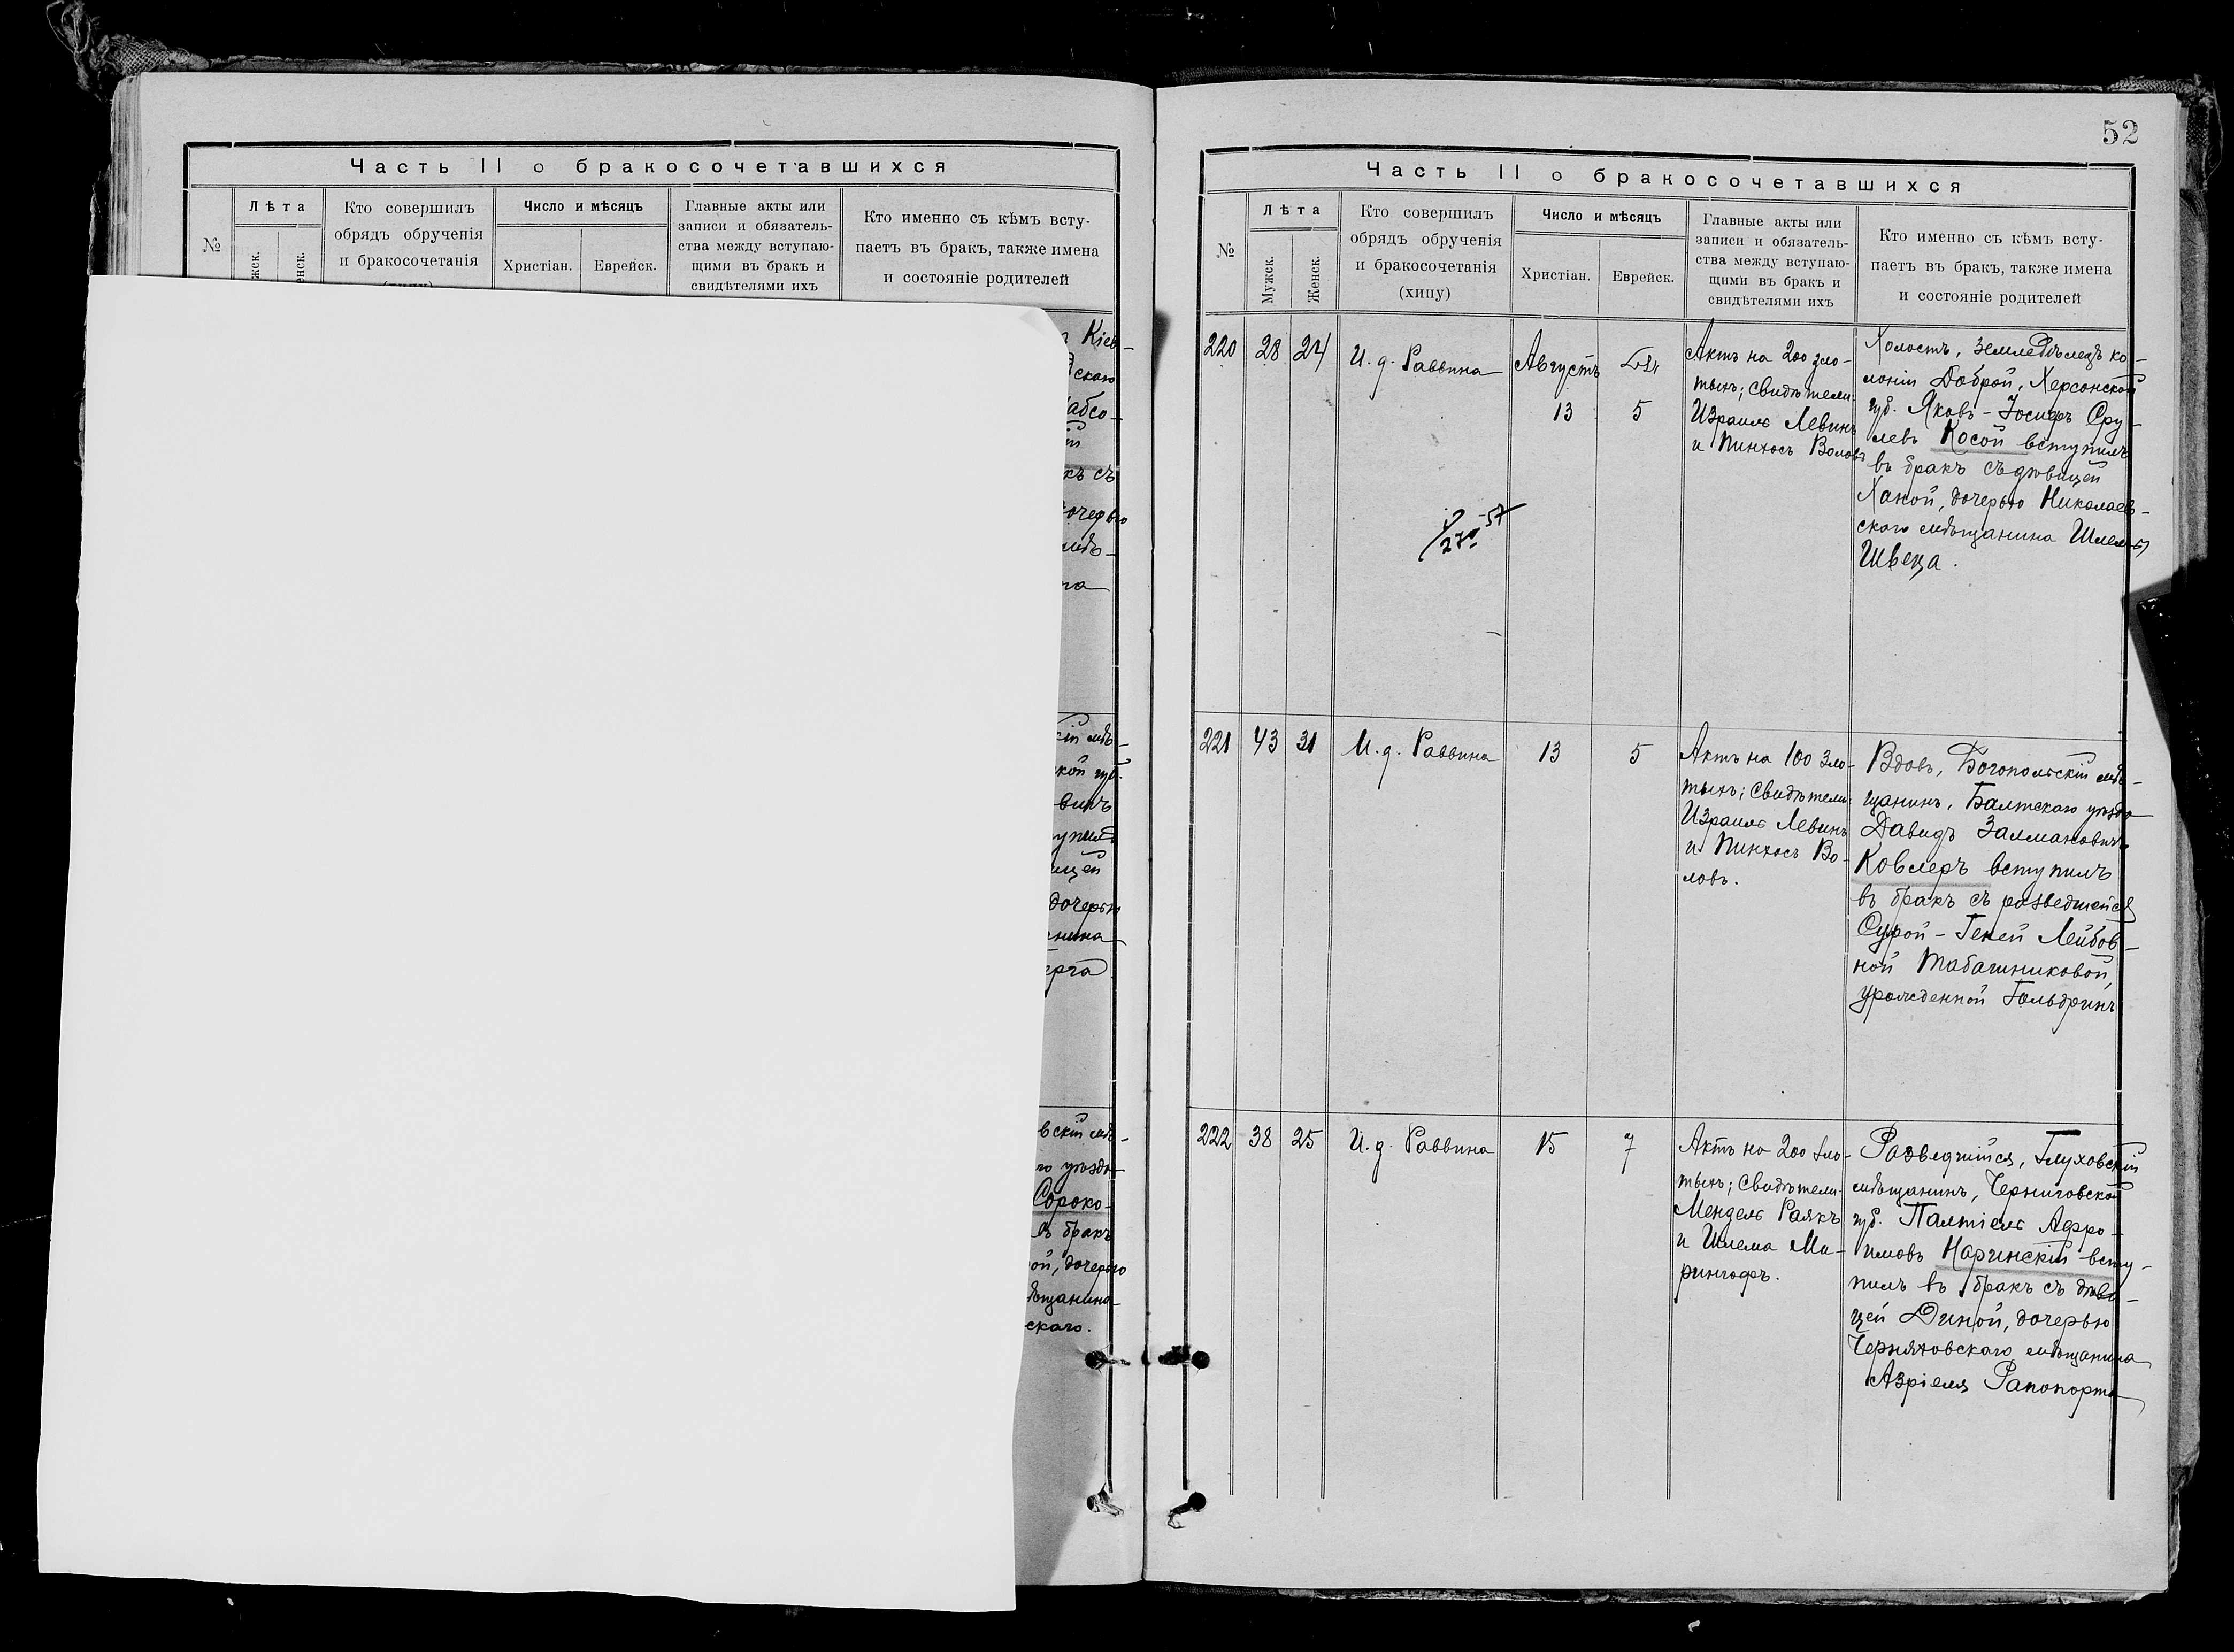 Часть II о бракосочетавшихся
№
Лѣта
Кто совершилъ
обрядъ обрученія
и бракосочетанія
Число и мѣсяцъ
Христіан.
Еврейск.
Главные акты или
записи и обязатель-
ства между вступаю-
щими въ бракъ и
свидѣтелями ихъ
Кто именно съ кѣмъ всту-
паетъ въ бракъ, также имена
и состояніе родителей
Кіев-
скаго
къ съ
дочерью
вичъ
дочерью
уѣзда
Сороко-
бракъ
ой, дочерью
скаго.
52
Часть II о бракосочетавшихся
№
Лѣта
Мужск.
Женск.
Кто совершилъ
обрядъ обрученія
и бракосочетанія
(хипу)
Число и мѣсяцъ
Христіан.
Еврейск.
Главные акты или
записи и обязатель-
ства между вступаю-
щими въ бракъ и
свидѣтелями ихъ
Кто именно съ кѣмъ всту-
паетъ въ бракъ, также имена
и состояніе родителей
220 28 24 И. д. Раввина Августъ
13 5
Актъ на 200 зло-
тыхъ; Свидѣтели:
Израиль Левинъ
и Пинхосъ Воловъ
Холостъ, земледѣлецъ ко-
лоніи Доброй, Херсонской
губ. Яковъ-Іосифъ Сру-
левъ Косой вступилъ
въ бракъ съ дѣвицей
Ханой, дочерью Николаев-
скаго мѣщанина Шлемы
Швеца.
221 43 31 И. д. Раввина 13 5
Актъ на 100 зло-
тыхъ; Свидѣтели:
Израиль Левинъ
и Пинхосъ Во-
ловъ.
Вдовъ, Богопольскій мѣ-
щанинъ, Балтскаго уѣзда
Давидъ Залмановичъ
Ковлеръ вступилъ
въ бракъ съ разведшейся
Сурой-Геней Лейбов-
ной Табачниковой,
урожденной Гольдринъ
222 38 25 И. д. Раввина 15 7
Актъ на 200 зло-
тыхъ; Свидѣтели:
Мендель Раякъ
и Шлема Ма-
рингофъ.
Разведшійся, Глуховскій
мѣщанинъ, Черниговской
губ. Палтіель Афро-
имовъ Наринскій всту-
пилъ въ бракъ съ дѣви-
цей Диной, дочерью
Черняховскаго мѣщанина
Азріеля Рапопорта